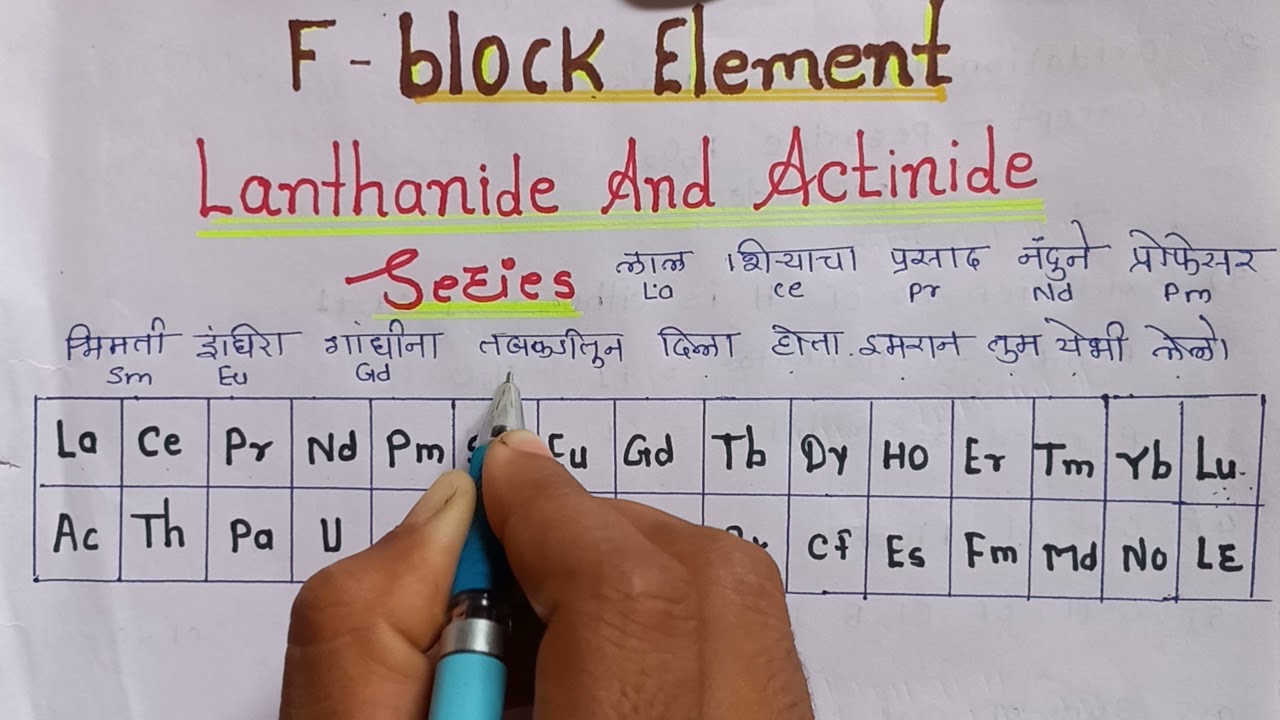 F - block Element
Lanthanide And Actinide
Series लाल शिऱ्याचा प्रसाद नंदुने प्रोफेसर
La Ce Pr Nd Pm
इंधिरा गांधीना तबकडीतुन दिला होता. इमरान तुम येभी लेलो
Sm Eu Gd
La Ce Pr Nd Pm Eu Gd Tb Dy HO Er Tm Yb Lu
Ac Th Pa U Cf Es Fm Md No LE